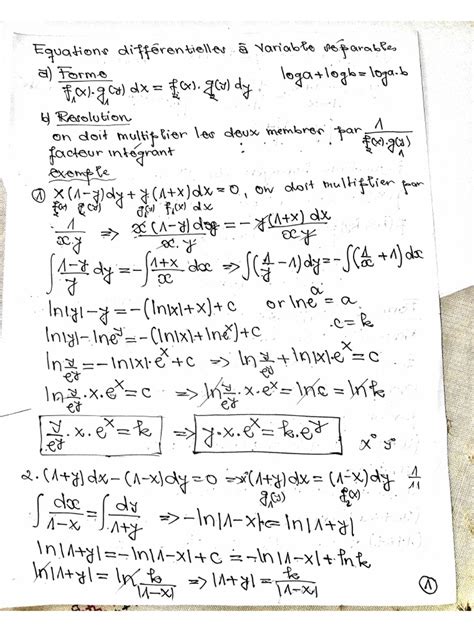 Equations différentielles à Variable séparables
a) Forme
loga+logb=loga.b
f₁(x).g₁(y) dx = f₂(x).g₂(y) dy
b) Resolution
on doit multiplier les deux membres par 1/(f₂(x).g₁(y))
facteur intégrant
exemple
① x(1-y)dy+y(1+x)dx=0, on doit multiplier par
f₂(x) g₂(y) g₁(y) f₁(x) dx
1/(x.y) ⇒ x(1-y)dy/(x.y) = - y(1+x)dx/(xy)
∫(1-y)/y dy=-∫(1+x)/x dx ⇒ ∫(1/y -1)dy=-∫(1/x +1)dx
ln|y|-y=-(ln|x|+x)+c or lneᵃ=a
ln|y|-lneʸ=-(ln|x|+lneˣ)+c .c=k
ln y/eʸ =-ln|x|.eˣ+c ⇒ ln y/eʸ +ln|x|.eˣ=c
ln y/eʸ .x.eˣ=c ⇒ ln y/eʸ .x.eˣ=lnc=lnk
y/eʸ .x.eˣ=k ⇒ y.x.eˣ=k.eʸ x° y°
2.(1+y)dx-(1-x)dy=0 ⇒ (1+y)dx=(1-x)dy 1/11
g₁(y) f₂(x)
∫dx/(1-x)=∫dy/(1+y) ⇒ -ln|1-x|+c=ln|1+y|
ln|1+y|=-ln|1-x|+c=-ln|1-x|+lnk
ln|1+y|=ln k/|1-x| ⇒ |1+y|=k/|1-x|
①